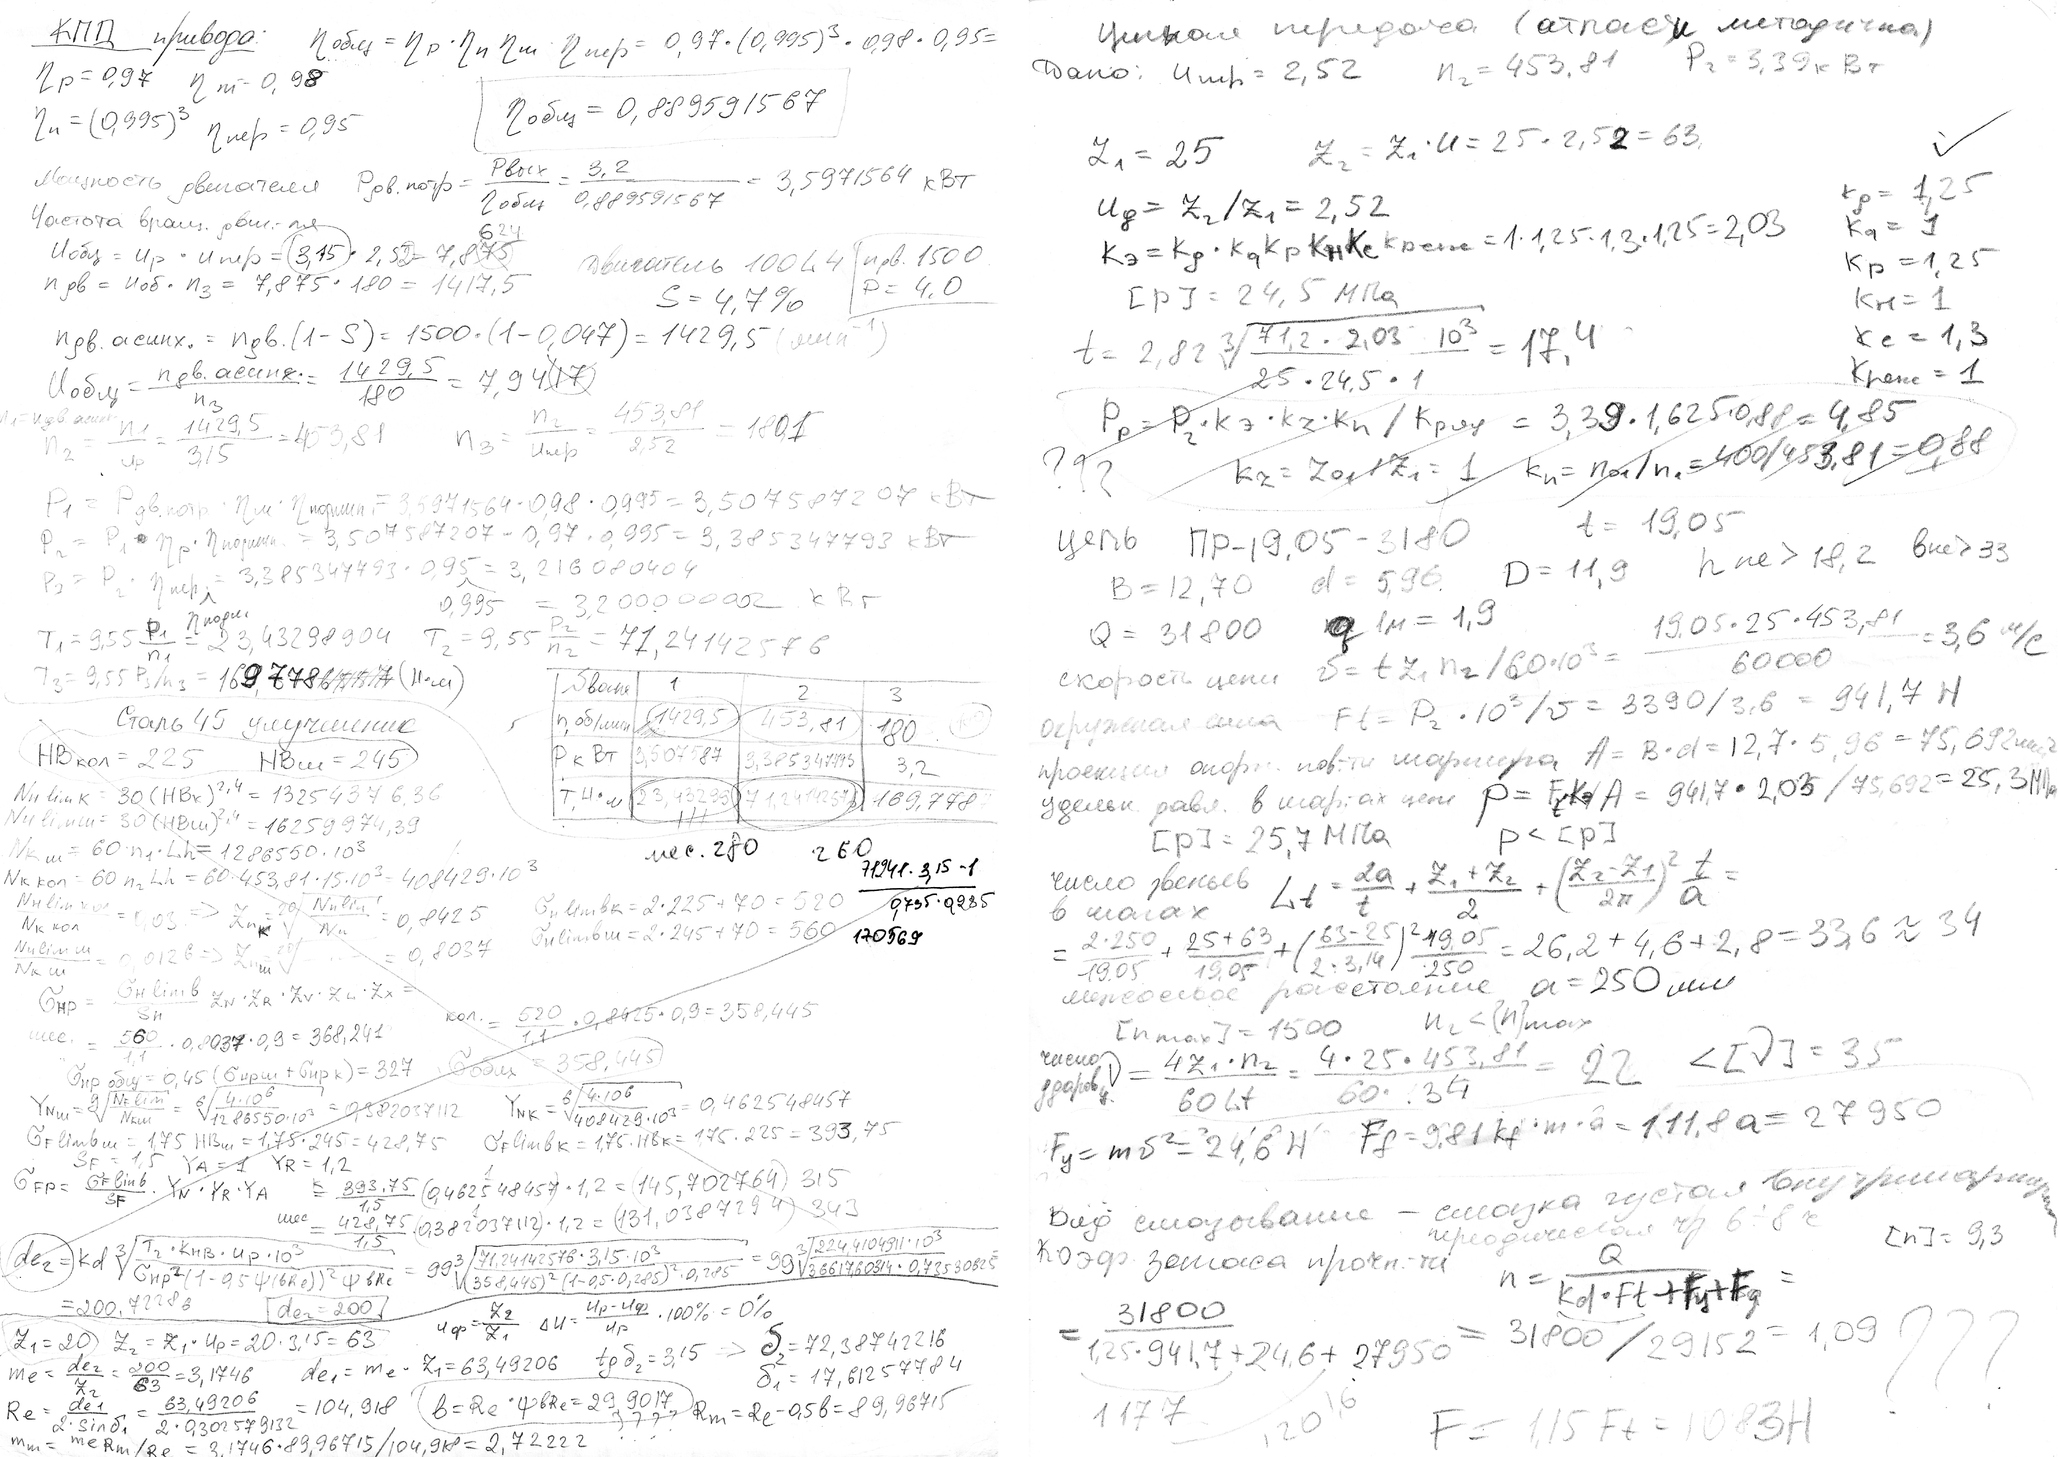 КПД привода: ηобщ = ηр · ηп ηм · ηпер = 0,97 · (0,995)³ · 0,98 · 0,95 =
ηр = 0,97 ηм = 0,98
ηп = (0,995)³ ηпер = 0,95
ηобщ = 0,889591567
Мощность двигателя Рдв.потр = Рвых / ηобщ = 3,2 / 0,889591567 = 3,5971564 кВт
Частота вращ. двиг-ля
624
Uобщ = Uр · Uпер = 3,15 · 2,5 = 7,875
nдв = Uоб · n3 = 7,875 · 180 = 1417,5
двигатель 100L4 nдв. 1500
S = 4,7% P = 4,0
nдв. асинх. = nдв. (1 - S) = 1500 · (1 - 0,047) = 1429,5 (мин⁻¹)
Uобщ = nдв. асинх. / n3 = 1429,5 / 180 = 7,9417
n2 = n1 / Uр = 1429,5 / 3,15 = 453,81 n3 = n2 / Uпер = 453,81 / 2,52 = 180,1
Р1 = Рдв.потр · ηм · ηподшип = 3,5971564 · 0,98 · 0,995 = 3,507587207 кВт
Р2 = Р1 · ηр · ηподшип = 3,507587207 · 0,97 · 0,995 = 3,385347793 кВт
Р3 = Р2 · ηпер = 3,385347793 · 0,95 = 3,216080404
ηподш 0,995 = 3,200000002 кВт
Т1 = 9,55 Р1 / n1 = 23,43298904 Т2 = 9,55 Р2 / n2 = 71,24142576
Т3 = 9,55 Р3/n3 = 169,778 (Н·м)
№ вала 1 2 3
n, об/мин 1429,5 453,81 180
Р кВт 3,507587 3,385347793 3,2
Т, Н·м 23,43299 71,2414257 169,7787
Сталь 45 улучшение
НВкол = 225 НВш = 245
NHlimк = 30(НВк)^2,4 = 13254376,36
NHlimш = 30(НВш)^2,4 = 16259974,39
Nк ш = 60·n1·Lh = 1286550·10³
Nк кол = 60 n2 Lh = 60·453,81·15·10³ = 408429·10³
мес. 280 260
71241·3,15·1 / 0,735·0,235
170569
NHlim кол / Nк кол = 0,03 => ZNк = ²⁰√NHlim / Nк = 0,8425
σHlimbк = 2·225+70 = 520
NHlim ш / Nк ш = 0,0126 => ZNш = = 0,8037
σHlimbш = 2·245+70 = 560
σHP = σHlimb / SH ZN · ZR · ZV · ZL · ZX =
кол. = 520 / 1,1 · 0,8425 · 0,9 = 358,445
шес. = 560 / 1,1 · 0,8037 · 0,9 = 368,241
σHP общ = 0,45 (σHPш + σHPк) = 327 σобщ = 358,445
YNш = ⁶√NFlim / NКш = ⁶√4·10⁶ / 1286550·10³ = 0,382037112 YNк = ⁶√4·10⁶ / 408429·10³ = 0,462548457
σFlimbш = 1,75 НВш = 1,75·245 = 428,75 σFlimbк = 1,75·НВк = 175·225 = 393,75
SF = 1,5 YA = 1 YR = 1,2
σFP = σFlimb / SF · YN · YR · YA к = 393,75 / 1,5 (0,462548457)·1,2 = (145,702764) 315
шес = 428,75 / 1,5 (0,382037112)·1,2 = (131,0387294) 343
de2 = kd ³√T2·KHB·uр·10³ / σHP²(1-0,5ψbRe)² ψbRe = 99 ³√71,24142576·3,15·10³ / (358,445)²(1-0,5·0,285)²·0,285 = 99 ³√224,4104911·10³ / 3661760914·0,73530625
= 200,72283 de2 = 200
uф = Z2 / Z1 Δu = uр-uф / uр · 100% = 0%
Z1 = 20 Z2 = Z1 · uр = 20·3,15 = 63
me = de2 / Z2 = 200 / 63 = 3,1746 de1 = me · Z1 = 63,49206 tg δ2 = 3,15 => δ2 = 72,38742216
δ1 = 17,61257784
Re = de1 / 2·sinδ1 = 63,49206 / 2·0,302579132 = 104,918 b = Re·ψbRe = 29,9017 Rm = Re-0,5b = 89,96715
????
mm = me Rm/Re = 3,1746·89,96715/104,918 = 2,72222
Цепная передача (атласы методичка)
Дано: Uпер = 2,52 n2 = 453,81 P2 = 3,39 кВт
Z1 = 25 Z2 = Z1·U = 25·2,52 = 63
Uф = Z2/Z1 = 2,52
Кэ = Кд · Ка Кр Кн Кс Креж = 1·1,25·1,3·1,25 = 2,03
Кд = 1,25
Ка = 1
Кр = 1,25
Кн = 1
Кс = 1,3
Креж = 1
[p] = 24,5 МПа
t = 2,82 ³√71,2 · 2,03 · 10³ / 25·24,5·1 = 17,4
Рр = Р2·Кэ·Кz·Кn / Кряд = 3,39·1,625·0,88 = 4,85
??? Кz = Z01/Z1 = 1 Кn = n01/n1 = 400/453,81 = 0,88
цепь ПР-19,05-3180 t = 19,05
В = 12,70 d = 5,96 D = 11,9 h не > 18,2 b не > 33
Q = 31800 q 1м = 1,9
скорость цепи v = t Z1 n2 / 60·10³ = 19,05·25·453,81 / 60000 = 3,6 м/с
окружная сила Ft = P2·10³/v = 3390/3,6 = 941,7 Н
проекция опорн. пов-ти шарнира А = В·d = 12,7·5,96 = 75,692 мм²
удельн. давл. в шарнах цепи p = Ft Кэ/А = 941,7·2,03/75,692 = 25,3 МПа
[p] = 25,7 МПа p < [p]
число звеньев в шагах Lt = 2a / t + Z1+Z2 / 2 + (Z2-Z1 / 2π)² t / a =
= 2·250 / 19,05 + 25+63 / 19,05 + (63-25 / 2·3,14)² 19,05 / 250 = 26,2 + 4,6 + 2,8 = 33,6 ≈ 34
межосевое расстояние a = 250 мм
[nmax] = 1500 n2 < [n]max
число ударов ν = 4Z1·n2 / 60Lt = 4·25·453,81 / 60·34 = 22 < [ν] = 35
Fy = mv² = 24,6 Н Ff = 9,81 kf·m·a = 111,8a = 27950
Вид смазывание – смазка густая внутришарнирн
периодическая чр 6÷8 ч
Коэф. запаса прочн-ти n = Q / Kd·Ft+Fy+Fg = [n] = 9,3
= 31800 / 1,25·941,7+24,6+27950 = 31800/29152 = 1,09 ???
1177
F = 1,15 Ft = 1083Н